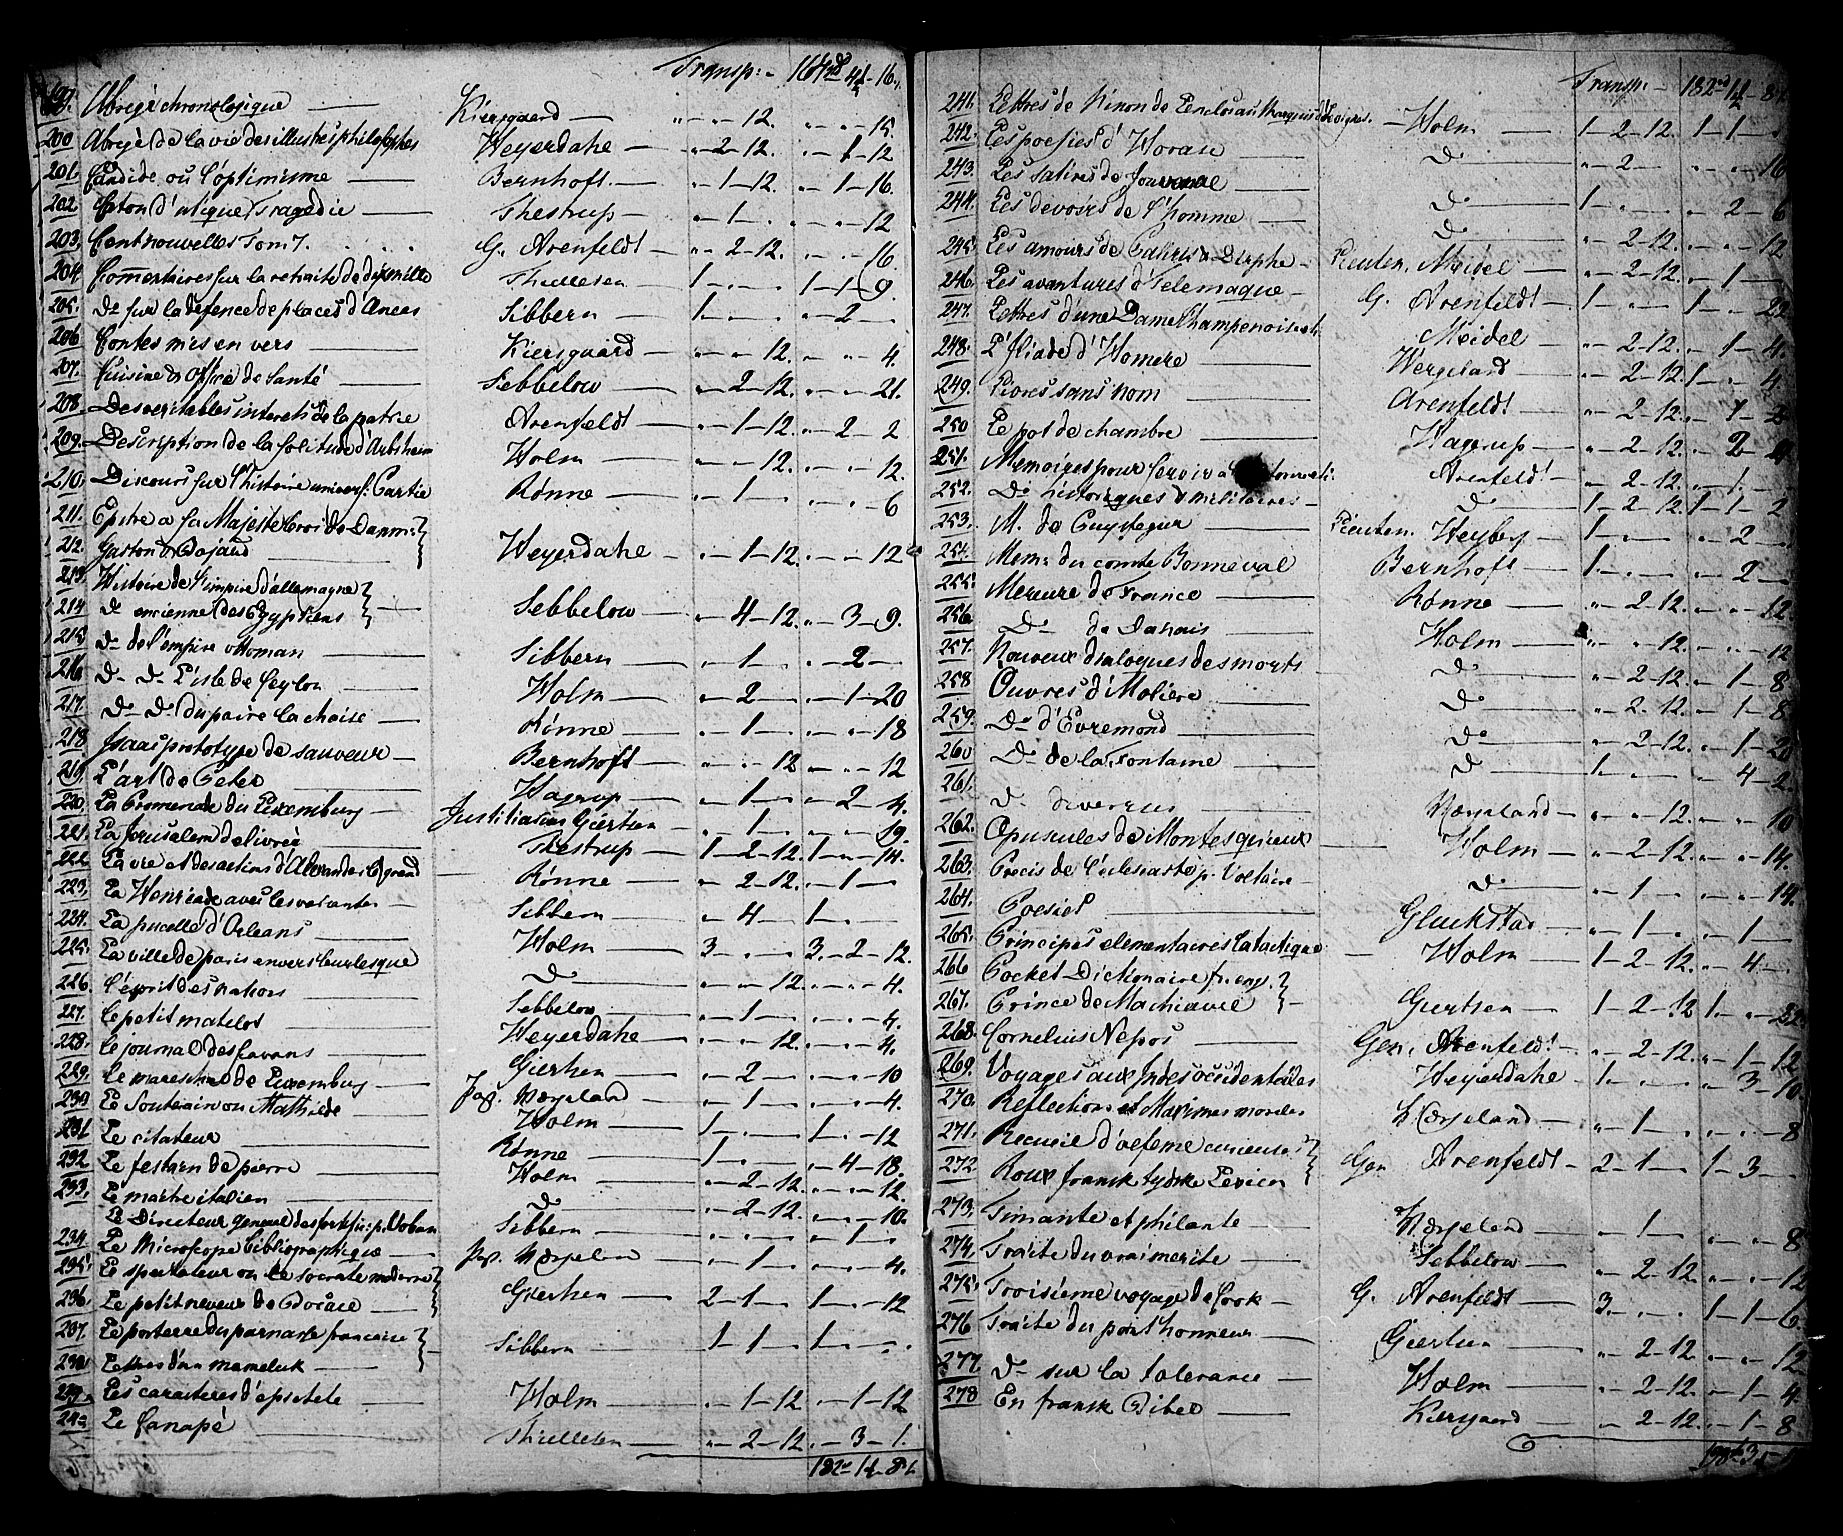 Transp: - 164rd 4 - 16.
199. Abregé chronologique — Kiersgaard — „-„-12. „-„-15.
200 Abregé de la vie des illustres philosophes Weyerdahl — „-2-12. „-1-12
201. Candide ou l'optimisme — Bernhoft. — „-1-12. „-1-16.
202 Caton d'utique, Tragedie — Thestrup — „-1-„. „-„-12
203. Cent nouvelles Tom 1. G. Arenfeldt — „-2-12. „-„-16.
204 Com̅entaires sur la retraite de dix mille Thillesen — 1-„-„. 1-1-9.
205. Do sur la defence de places d'Ances Sibbern — 1-„-„. „-2-„
206 Contes mis en vers — Kiersgaard — „-„-12. „-„-4.
207. Cuisine & office de Santé — Sebbelow — „-2-12. „-„-21.
208. Des veritables interets de la patrie Arenfeldt — „-1-12. „-2-2
209. Description de la solitude d'Arlsheim Holm — „-„-12. „-„-12.
210. Discours sur l'histoire univers: Partie Rønne — „-1-„. „-„-6
211. Epitre a sa Majeste le roi de Danm: }
212. Gaston & Bajard — } Weyerdahl — „-1-12. „-„-12
213. Histoire de l'empire d'allemagne }
214 do ancienne des Egyptiens } — Sebbelow — „-4-12. „-3-9.
215. do de l'empire ottoman — Sibbern — „-1-„. „-2-„
216. Do Do L'isle de Ceylon — Holm — „-2-„. „-1-20
217. Do Do du paire la chaise — Rønne — „-1-„. „-„-18
218 Isaas prototype de sauveur — Bernhoft — „-„-12 „-„-12
219. L'art de Peter — Hagrup — „-1-„. „-2-4.
220. La Promenade du Luxemburg — Justitiarius Giertsen — „-1-„. „-„-19.
221. La Jerusalem delivrée — Thestrup — 1-2-12. 1-„-14.
222. La vie et des actions d'Alexander le grand — Rønne — „-2-12. „-1-„
223. La Henriade avec les variantes — Sibbern — „-4-„ 1-„-„
224. La pucelle d'Orleans — Holm — 3-„-„. 3-2-12.
225. La ville de paris en vers burlesque do — „-„-12. „-„-4.
226. L'esprit des nations — Sebbelow — „-1-„. „-„-4.
227. Le petit matelot — Weyerdahl — „-„-12. „-„-4.
228. Le journal des savans — Giertsen — „-2-„ „-„-10
229. Le mareschal de Luxemburg — Jag. Nørgeland — „-1-„. „-„-4.
230 Le Souterain ou Mathilde — Holm — 1-„-„. 1-„-12
231 Le citateur — Rønne — 1-„-„. „-4-18.
232 Le festien de pierre — Holm — „-2-12. „-„-12.
233. Le maitre italien — do — „-2-12. „-„-10.
Le Directeur general des fortific: p. Voban Sibbern — „-„-„. „-1-„
234. Le Microscope bibliographique — Jag. Nørgeland „-1-„ „-„-4.
235. Le spectateur ou le socrate moderne }
236. Le petit neveux de Bocace — } Giertsen — 2-1-„. 1-„-12
237. Le porterre du parnasse francaise }
238. Lettres d'un mameluk — } Sibbern — 1-1-„ 1-„-„.
239. Les caracteres d'epictete Holm — „-1-12 „-1-12
240 Le Canapé — Thillesen — „-2-12 „-3-1.
182rd 1-8
Transp: - 182rd 1-8.
241. Lettres de Ninon de Lenclos au Marquis de Sevigné. — Holm — 1-2-12. 1-1-„
242. Les poesies d'Horace — do — „-2-„. „-„-16
243. Les satires de Jouvenal — do — 1-„-„. „-2-6
244. Les devoirs de l'homme — do — „-2-12. „-„-12
245. Les amours de Calires & Dirphe — Lieuten. Meidel — „-2-12. „-1-„
246. Les avantures d'Telemaque — G. Arenfeldt — 1-„-„. 1-„-22
247. Lettres d'une Dame Champenoise Meidel — „-2-12. „-1-4.
248. L'Iliade d'Homere — Wergeland — „-2-12. 1-„-4
249. Livres sans nom — Arenfeldt — „-2-12. „-1-2
250 Le pot de chambre — Hagerup — „-2-12. „-2-4
251. Memoires pour servir a Arenfeldt — „-2-12. „-1-„
252. Do historiques & militaires — do — 1-2-12. 1-1-2
253. M. de Guystegier — Lieuten. Weyberg — 1-„-„. „-2-„
254. Mem: du comte Bonneval Bernhoft — 1-„-„. „-2-„
255. Mercure de France — Rønne — „-2-12. „-„-12.
256. Do de Danois — Holm — „-„-12. „-„-12
257. Nouveux dialogues des morts do — „-2-12. „-1-8
258. Ouvres d'Moliere — do — „-2-12. „-1-8
259. Do d'Evremond — do — „-2-12. „-1-20
260 Do de la Fontaine — do — 1-„-„. „-4-2.
261. do diverses — Nørgeland — „-„-12. „-„-10
262. Opuscules de Montesquieux — Holm — „-2-12. „-„-14.
263. Precis de l'eclesiaste p. Voltaire — do — „-1-„ „-„-14.
264. Poesies — Gluckstad — „-1-„ „-1-„
265. Principes elementaires la tactique Holm — 1-2-12. „-4-„.
266 Pocket-Dictionaire fr. eng. }
267. Prince de Machiavel } — Giertsen — 1-2-12 1-„-22.
268. Cornelius Nepos — Gen. Arenfeldt — „-2-12. „-1-12
269. Voyages aux Indes occidentales Weyerdahl — 1-„-„. „-3-10
270. Reflections et Maximes morales Nørgeland — „-1-„. „-„-8
271. Recueil d'oeteme curieuses }
272 Roux fransk tydske Lexicon } Gen Arenfeldt — 2-1-„ 1-3-„
273. Timante et philante — Nørgeland — „-1-„ „-„-8
274. Traite du vrai merite — Sebbelow — „-2-12. „-„-12
275. Troisième voyage de Cook — G. Arenfeldt — 3-„-„. 1-1-6.
276 Traite du point honneur — Giertsen — „-2-12 „-„-12
277. Do sur la tolerance — Holm — „-2-12. „-1-4.
278 En fransk Bibel — Kiersgaard — „-2-12. „-1-8.